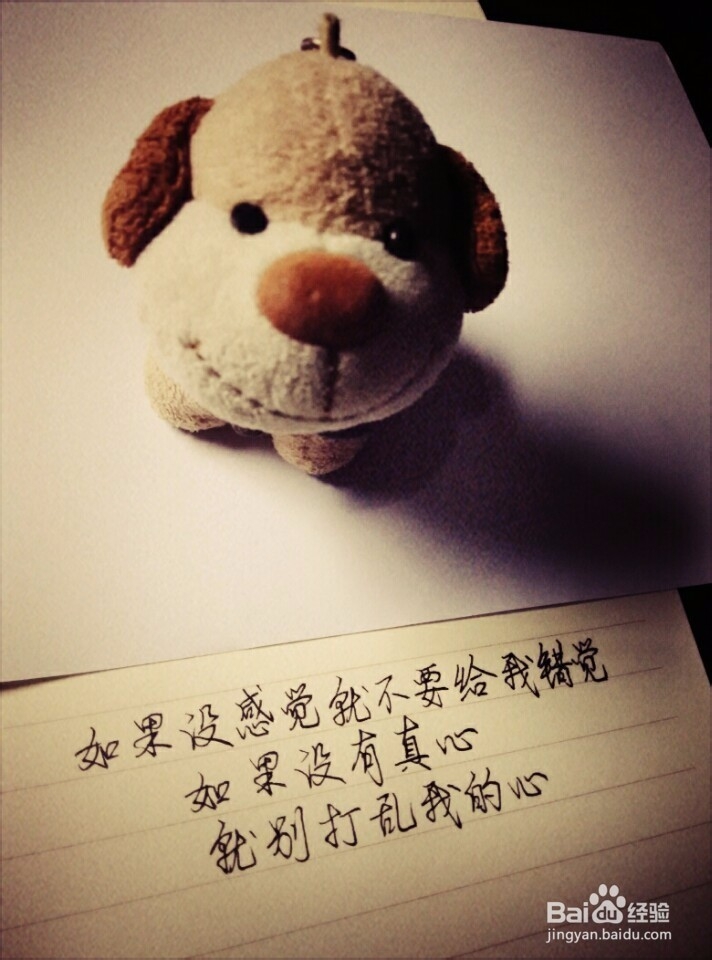 如果没感觉就不要给我错觉
如果没有真心
就别打乱我的心
Bai du 经验
jingyan.baidu.com